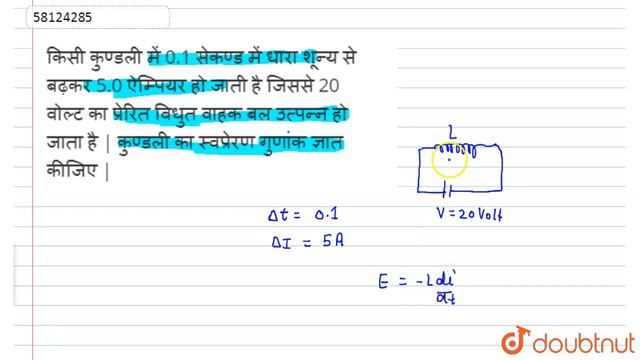 58124285
किसी कुण्डली में 0.1 सेकण्ड में धारा शून्य से
बढ़कर 5.0 ऐम्पियर हो जाती है जिससे 20
वोल्ट का प्रेरित विधुत वाहक बल उत्पन्न हो
जाता है | कुण्डली का स्वप्रेरण गुणांक ज्ञात
कीजिए |
L
V = 20 Volt
Δt = 0.1
ΔI = 5A
E = -L di/dt
doubtnut